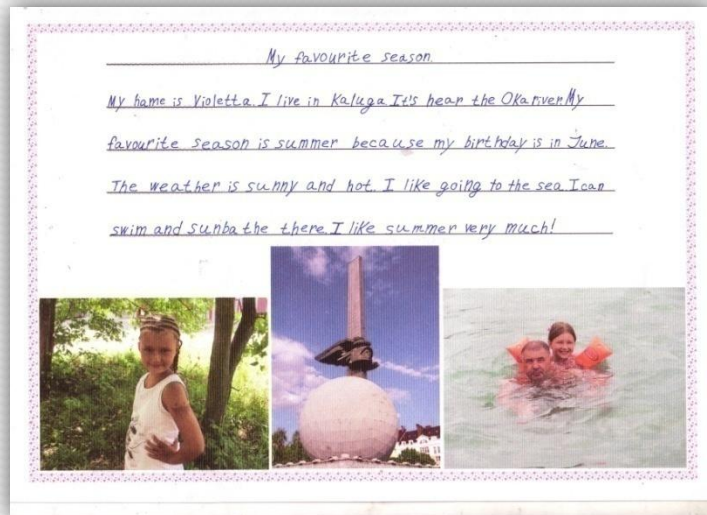 My favourite season.
My name is Violetta. I live in Kaluga. It's near the Oka river. My
favourite season is summer because my birthday is in June.
The weather is sunny and hot. I like going to the sea. I can
swim and sunbathe there. I like summer very much!